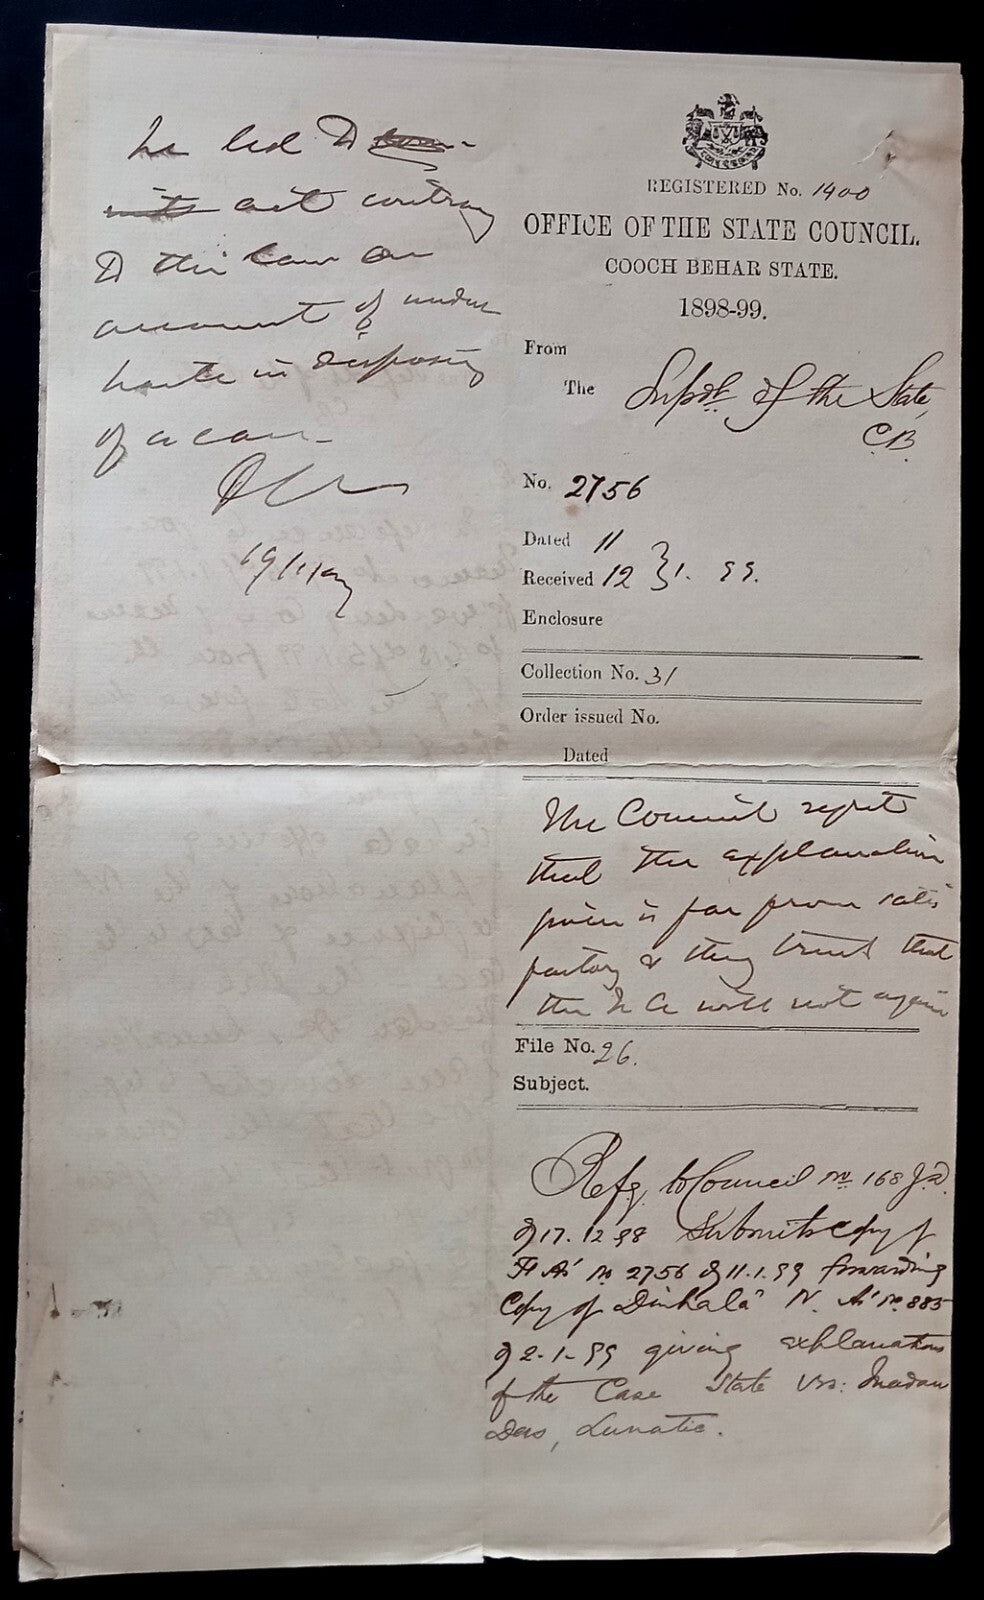 REGISTERED No. 1400
OFFICE OF THE STATE COUNCIL.
COOCH BEHAR STATE.
1898-99.
From
The Supdt. of the State,
C.B.
No. 2756
Dated 11
Received 12 } 1. 99.
Enclosure
Collection No. 31
Order issued No.
Dated
The Council regret
that the explanation
given is far from satis
factory & they trust that
the N A will not again
be led to
act contrary
to the law on
account of undue
haste in disposing
of a case.
19/1/99
File No. 26.
Subject.
Refg. to Council no 168 J.D.
of 17.12.98 submits copy of
F A's no 2756 of 11.1.99 forwarding
Copy of Dinhata N. A's no 885
of 2-1-99 giving explanation
of the Case State Vrs: Madan
Das, Lunatic.